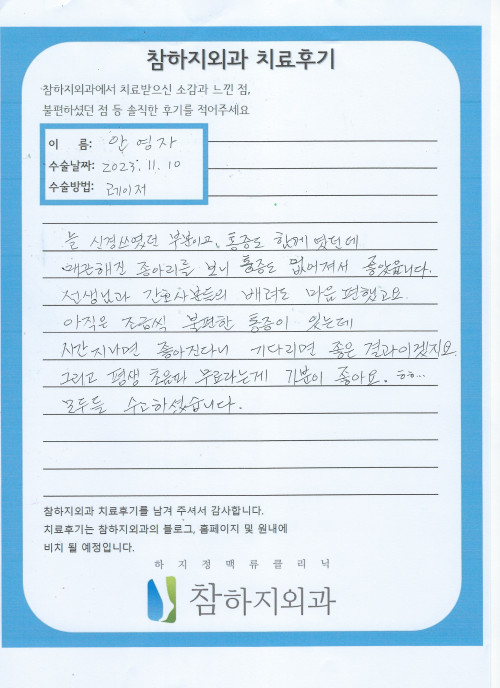 참하지외과 치료후기
참하지외과에서 치료받으신 소감과 느낀 점,
불편하셨던 점 등 솔직한 후기를 적어주세요
이 름: 안영자
수술날짜: 2023. 11. 10
수술방법: 레이저
늘 신경쓰였던 부분이고, 통증도 함께 였던데
매관해진 종아리를 보니 통증도 없어져서 좋았읍니다.
선생님과 간호사분들의 배려도 마음 편했고요
아직은 조금씩 불편한 통증이 있는데
시간 지나면 좋아진다니 기다리면 좋은 결과이겠지요.
그리고 평생 초음파 무료라는게 기분이 좋아요. ㅎㅎ...
모두들 수고하셨습니다.
참하지외과 치료후기를 남겨 주셔서 감사합니다.
치료후기는 참하지외과의 블로그, 홈페이지 및 원내에
비치 될 예정입니다.
하지정맥류클리닉
참하지외과